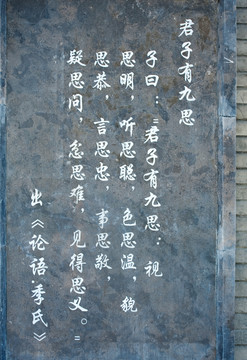 君子有九思
子曰："君子有九思：视
思明，听思聪，色思温，貌
思恭，言思忠，事思敬，
疑思问，忿思难，见得思义。"
出《论语·季氏》